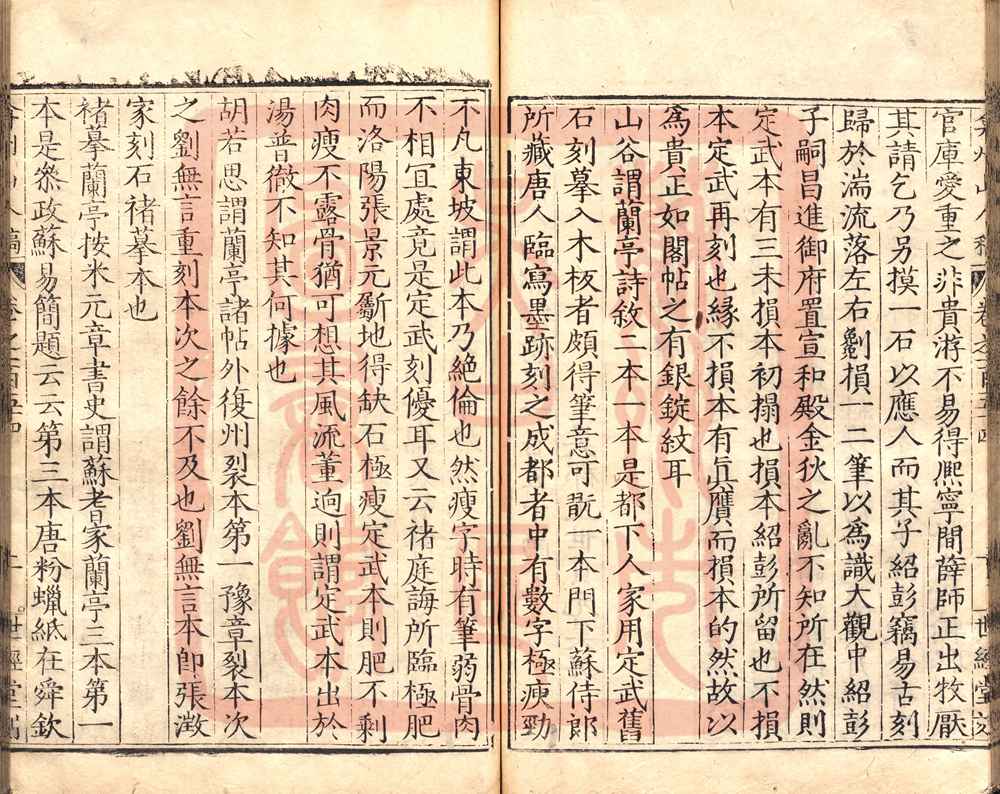 弇州山人稿 卷之一百五十四 十 世經堂刻
官庫愛重之非貴游不易得熈寧間薛師正出牧厭
其請乞乃另摸一石以應人而其子紹彭竊易古刻
歸於湍流落左右劖損一二筆以爲識大觀中紹彭
子嗣昌進御府置宣和殿金狄之亂不知所在然則
定武本有三未損本初搨也損本紹彭所留也不損
本定武再刻也縁不損本有眞贋而損本的然故以
爲貴正如閣帖之有銀錠紋耳
山谷謂蘭亭詩敘二本一本是都下人家用定武舊
石刻摹入木板者頗得筆意可翫一本門下蘇侍郎
所藏唐人臨寫墨跡刻之成都者中有數字極瘐勁
不凡東坡謂此本乃絕倫也然瘦字時有筆弱骨肉
不相宜處竟是定武刻優耳又云褚庭誨所臨極肥
而洛陽張景元斸地得缺石極瘦定武本則肥不剩
肉瘦不露骨猶可想其風流董逌則謂定武本出於
湯普徹不知其何據也
胡若思謂蘭亭諸帖外復州裂本第一豫章裂本次
之劉無言重刻本次之餘不及也劉無言本卽張澂
家刻石褚摹本也
褚摹蘭亭按米元章書史謂蘇耆家蘭亭三本第一
本是叅政蘇易簡題云云第三本唐粉蠟紙在舜欽
弇州山人稿 卷之一百五十四 十一 世經堂刻